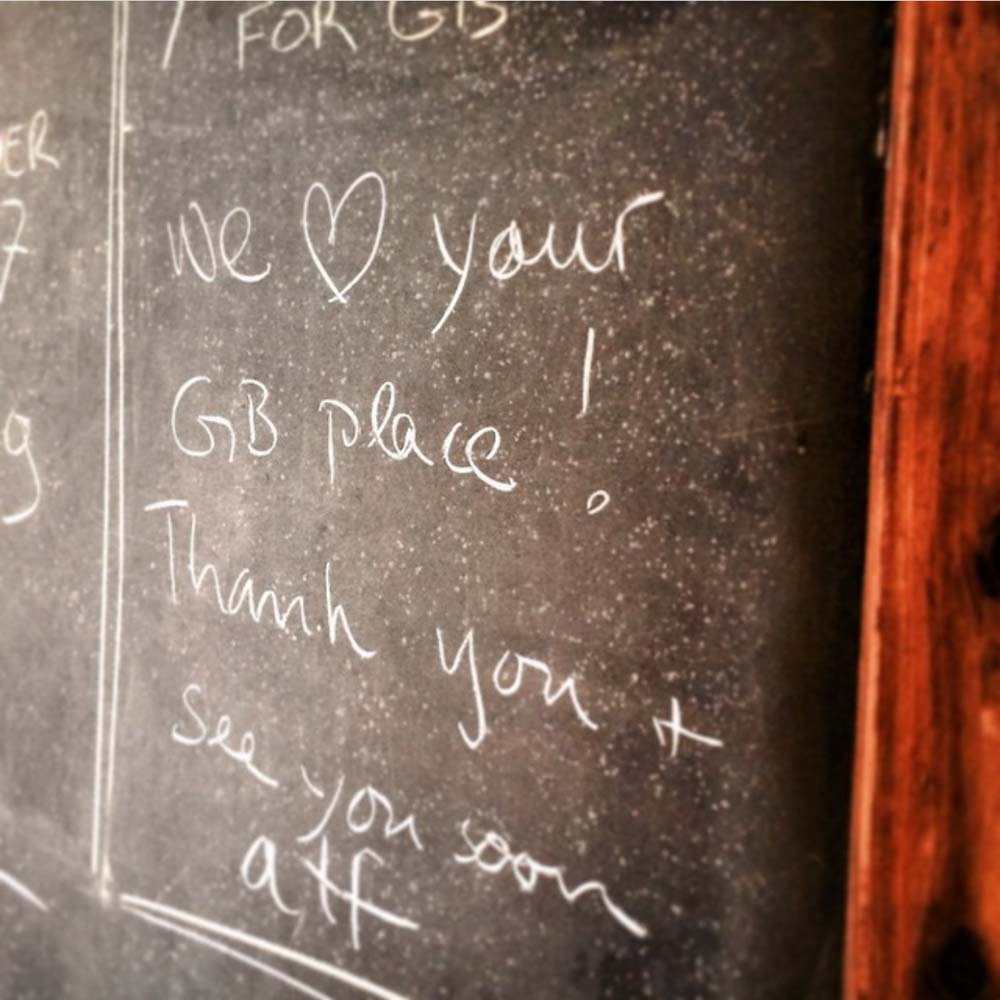 FOR GB
We ♡ your
GB place!
Thank you +
See you soon
atf